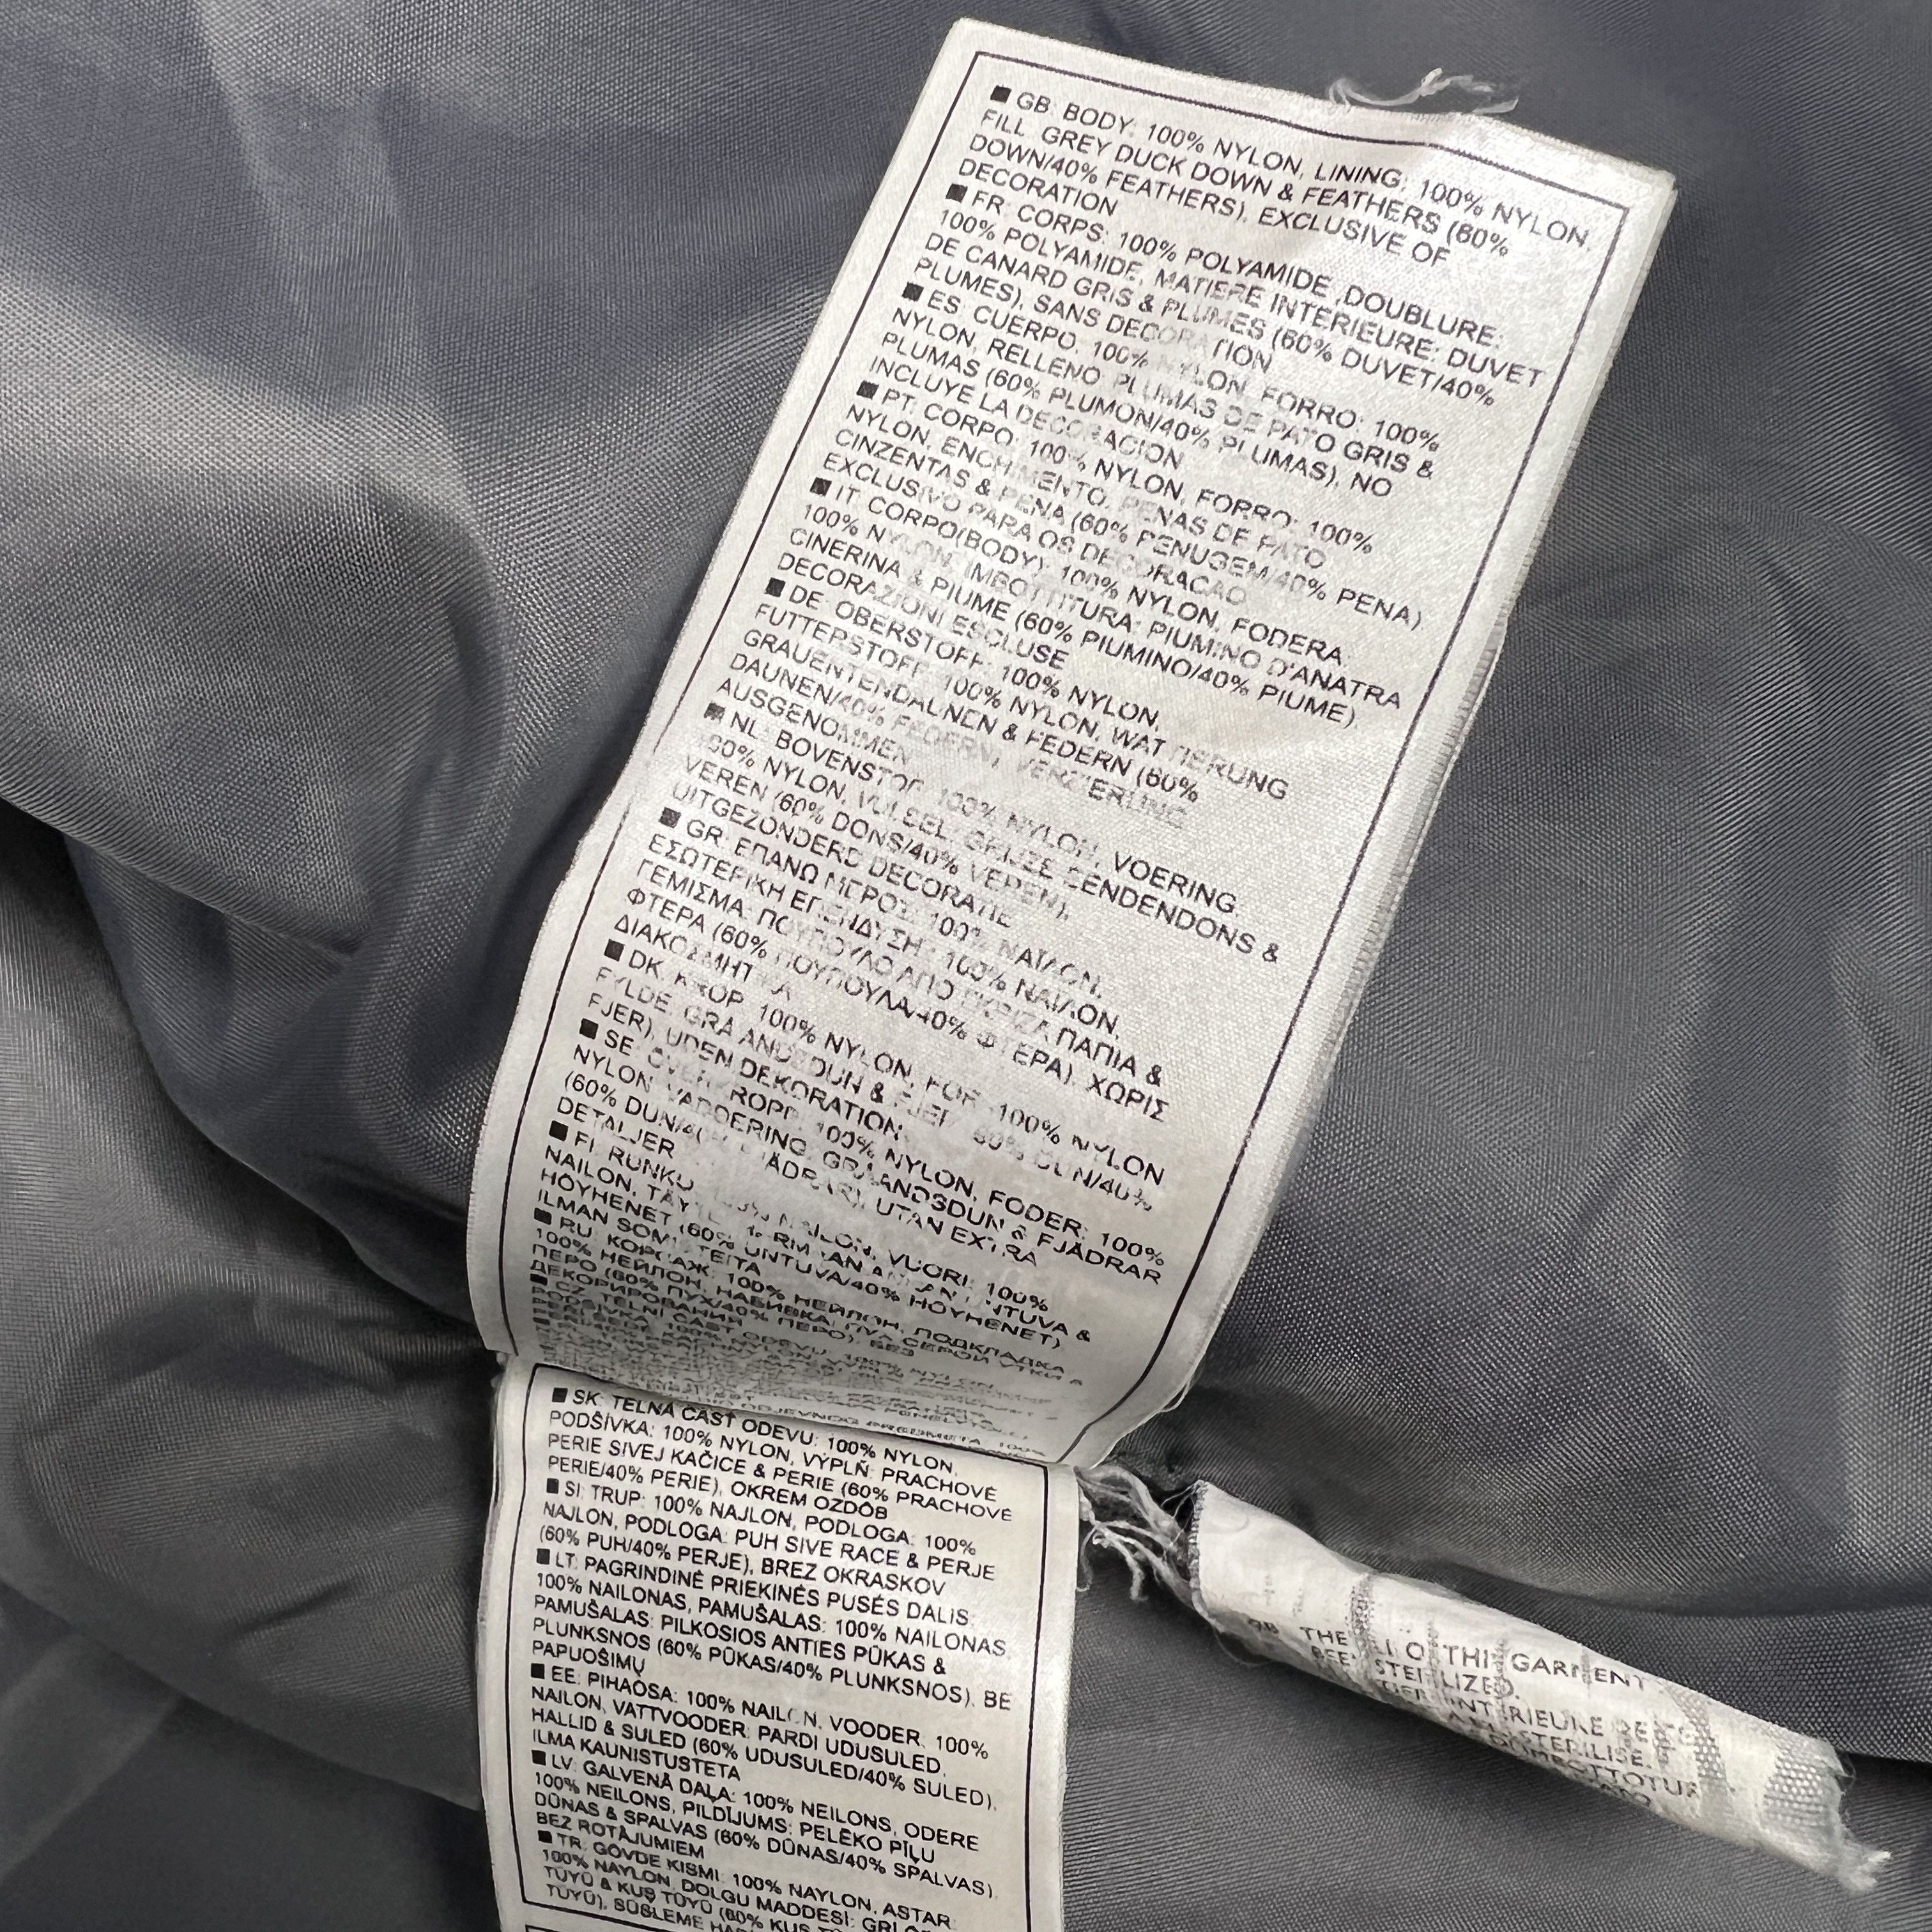 ■ GB: BODY: 100% NYLON, LINING: 100% NYLON,
FILL: GREY DUCK DOWN & FEATHERS (60%
DOWN/40% FEATHERS), EXCLUSIVE OF
DECORATION
■ FR: CORPS: 100% POLYAMIDE, DOUBLURE:
100% POLYAMIDE, MATIERE INTERIEURE: DUVET
DE CANARD GRIS & PLUMES (60% DUVET/40%
PLUMES), SANS DECORATION
■ ES: CUERPO: 100% NYLON, FORRO: 100%
NYLON, RELLENO: PLUMAS DE PATO GRIS &
PLUMAS (60% PLUMON/40% PLUMAS), NO
INCLUYE LA DECORACION
■ PT: CORPO: 100% NYLON, FORRO: 100%
NYLON, ENCHIMENTO: PENAS DE PATO
CINZENTAS & PENA (60% PENUGEM/40% PENA)
EXCLUSIVO PARA OS DECORACAO
■ IT: CORPO(BODY): 100% NYLON, FODERA:
100% NYLON, IMBOTTITURA: PIUMINO D'ANATRA
CINERINA & PIUME (60% PIUMINO/40% PIUME)
DECORAZIONI ESCLUSE
■ DE: OBERSTOFF: 100% NYLON,
FUTTERSTOFF: 100% NYLON, WATTIERUNG
GRAUENTENDAUNEN & FEDERN (60%
DAUNEN/40% FEDERN), VERZIERUNG
AUSGENOMMEN
■ NL: BOVENSTOF: 100% NYLON, VOERING:
100% NYLON, VULSEL: GRIJZE EENDENDONS &
VEREN (60% DONS/40% VEREN),
UITGEZONDERD DECORATIE
■ GR: ΕΠΑΝΩ ΜΕΡΟΣ: 100% ΝΑΙΛΟΝ,
ΕΣΩΤΕΡΙΚΗ ΕΠΕΝΔΥΣΗ: 100% ΝΑΙΛΟΝ,
ΓΕΜΙΣΜΑ: ΠΟΥΠΟΥΛΟ ΑΠΟ ΓΚΡΙΖΑ ΠΑΠΙΑ &
ΦΤΕΡΑ (60% ΠΟΥΠΟΥΛΑ/40% ΦΤΕΡΑ), ΧΩΡΙΣ
ΔΙΑΚΟΣΜΗΤΙΚΑ
■ DK: KROP: 100% NYLON, FOR: 100% NYLON
FYLDE: GRA ANDEDUN & FJER 60% DUN/40%
FJER), UDEN DEKORATION
■ SE: 100% NYLON, FODER: 100%
NYLON VADDERING: GRA ANDSDUN & FJÄDRAR
(60% DUN/40% FJÄDRAR), UTAN EXTRA
DETALJER
■ FI: RUNKO: 100% NAILON, VUORI: 100%
NAILON, TÄYTE: UNTUVA &
HÖYHENET (60% UNTUVA/40% HÖYHENET)
ILMAN SOMISTEITA
■ RU: КОРСАЖ: 100% НЕЙЛОН, ПОДКЛАДКА
100% НЕЙЛОН, НАБИВКА: ПУХ СЕРОЙ УТКИ &
ПЕРО (60% ПУХ/40% ПЕРО), БЕЗ
ДЕКОРИРОВАНИЯ
■ CZ: TELNÍ ČÁST ODĚVU: 100% NYLON
PODŠÍVKA: 100% NYLON
■ SK: TELNÁ ČASŤ ODEVU: 100% NYLON,
PODŠÍVKA: 100% NYLON, VÝPLŇ: PRACHOVÉ
PERIE SIVEJ KAČICE & PERIE (60% PRACHOVÉ
PERIE/40% PERIE), OKREM OZDÔB
■ SI: TRUP: 100% NAJLON, PODLOGA: 100%
NAJLON, PODLOGA: PUH SIVE RACE & PERJE
(60% PUH/40% PERJE), BREZ OKRASKOV
■ LT: PAGRINDINĖ PRIEKINĖS PUSĖS DALIS:
100% NAILONAS, PAMUŠALAS: 100% NAILONAS,
PAMUŠALAS: PILKOSIOS ANTIES PŪKAS &
PLUNKSNOS (60% PŪKAS/40% PLUNKSNOS), BE
PAPUOŠIMŲ
■ EE: PIHAOSA: 100% NAILON, VOODER: 100%
NAILON, VATTVOODER: PARDI UDUSULED,
HALLID & SULED (60% UDUSULED/40% SULED),
ILMA KAUNISTUSTETA
■ LV: GALVENĀ DAĻA: 100% NEILONS, ODERE
100% NEILONS, PILDĪJUMS: PELĒKO PĪĻU
DŪNAS & SPALVAS (60% DŪNAS/40% SPALVAS),
BEZ ROTĀJUMIEM
■ TR: GÖVDE KISMI: 100% NAYLON, ASTAR:
100% NAYLON, DOLGU MADDESİ:
TÜYÜ & KUŞ TÜYÜ (60% KUŞ
TÜYÜ), SÜSLEME
GB THE OF THIS GARMENT
STERILIZED.
INTERIEURE DE
STERILISE.